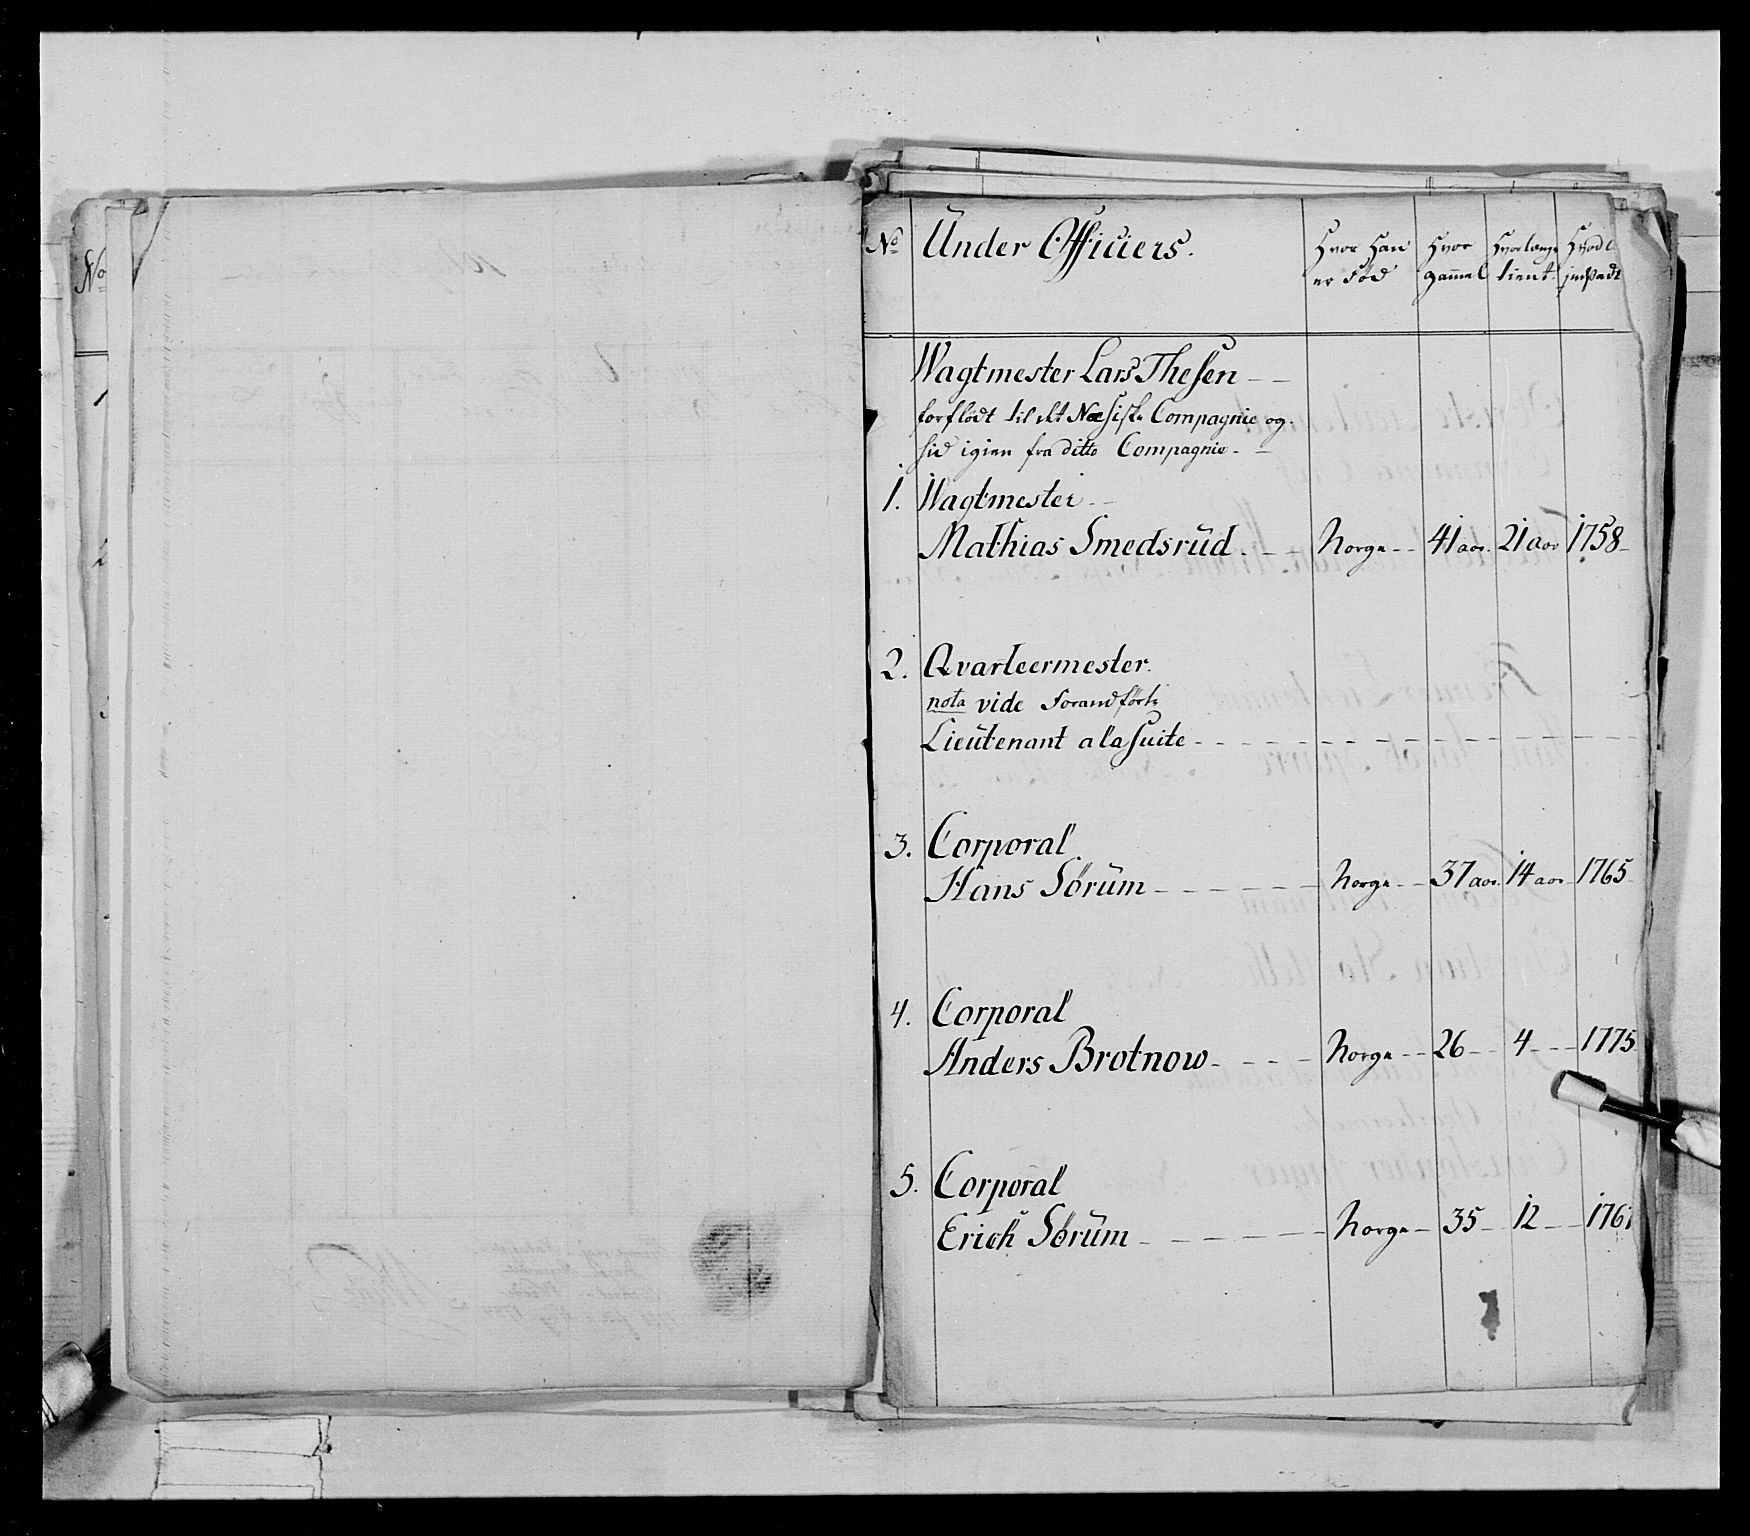 No
No Under Officiers. Hvor Han er Fød Hvor gammel Hvor længe tient Hvad
Wagtmester Lars Thesen - -
forflödt til det Næsiske Compagnie og
hid igien fra ditto Compagnie - -
1. Wagtmester - -
Mathias Smedsrüd. - - Norge - - 41 aar. 21 aar 1758 -
2. Qvarteermester.
nota vide Foranførte
Lieütenant a la Suite - - - - - - - - - - - -
3. Corporal
Hans Sörüm - - - - - - Norge - - 37 aar. 14 aar - 1765 -
4. Corporal
Anders Brotnow - - - - Norge - - 26 - - 4 - - - 1775
5. Corporal
Erich Sörüm - - - - - - Norge - 35 - - 12 - - - 1767